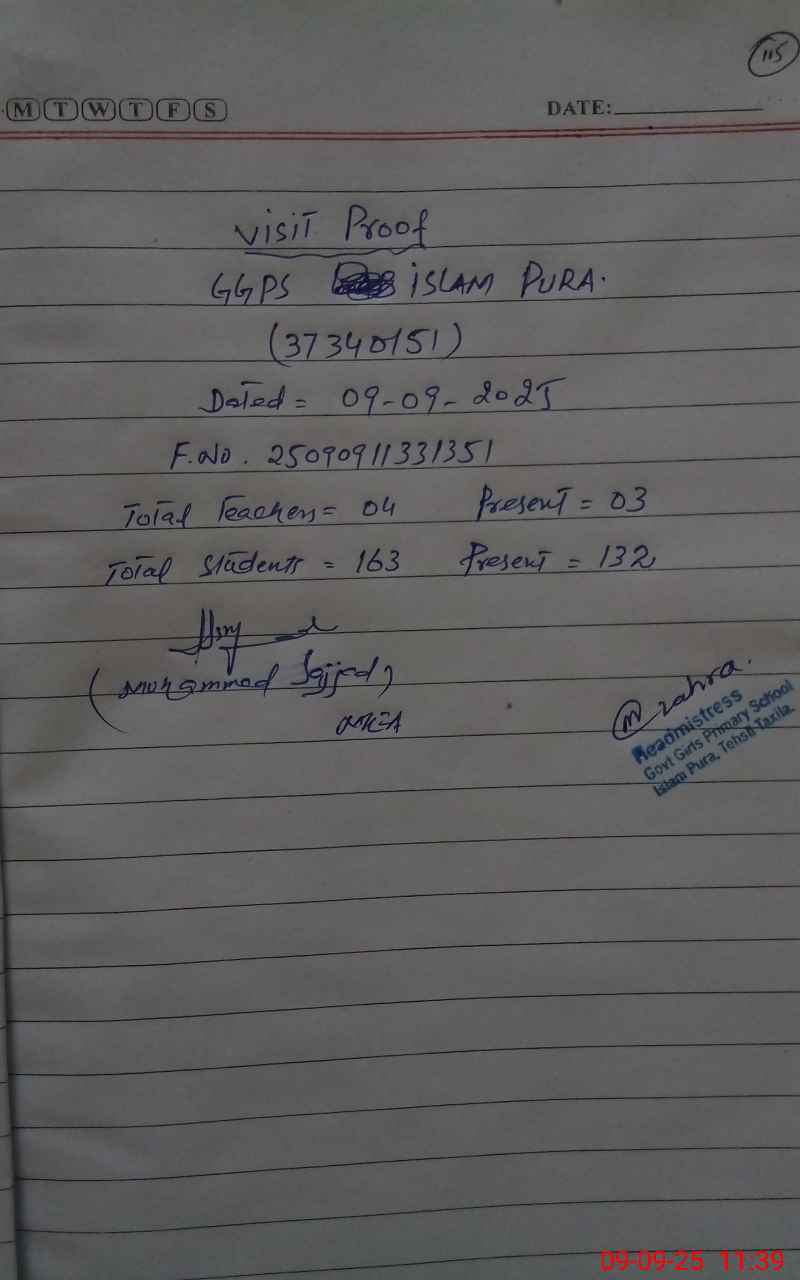 115
M T W T F S DATE:
Visit Proof
GGPS ISLAM PURA.
(37340151)
Dated = 09-09-2025
F.No. 25090911331351
Total Teachers = 04 Present = 03
Total Students = 163 Present = 132
(Muhammad Sajjad)
MEA
zahra.
Headmistress
Govt Girls Primary School
Islam Pura, Tehsil Taxila.
09-09-25 11:39